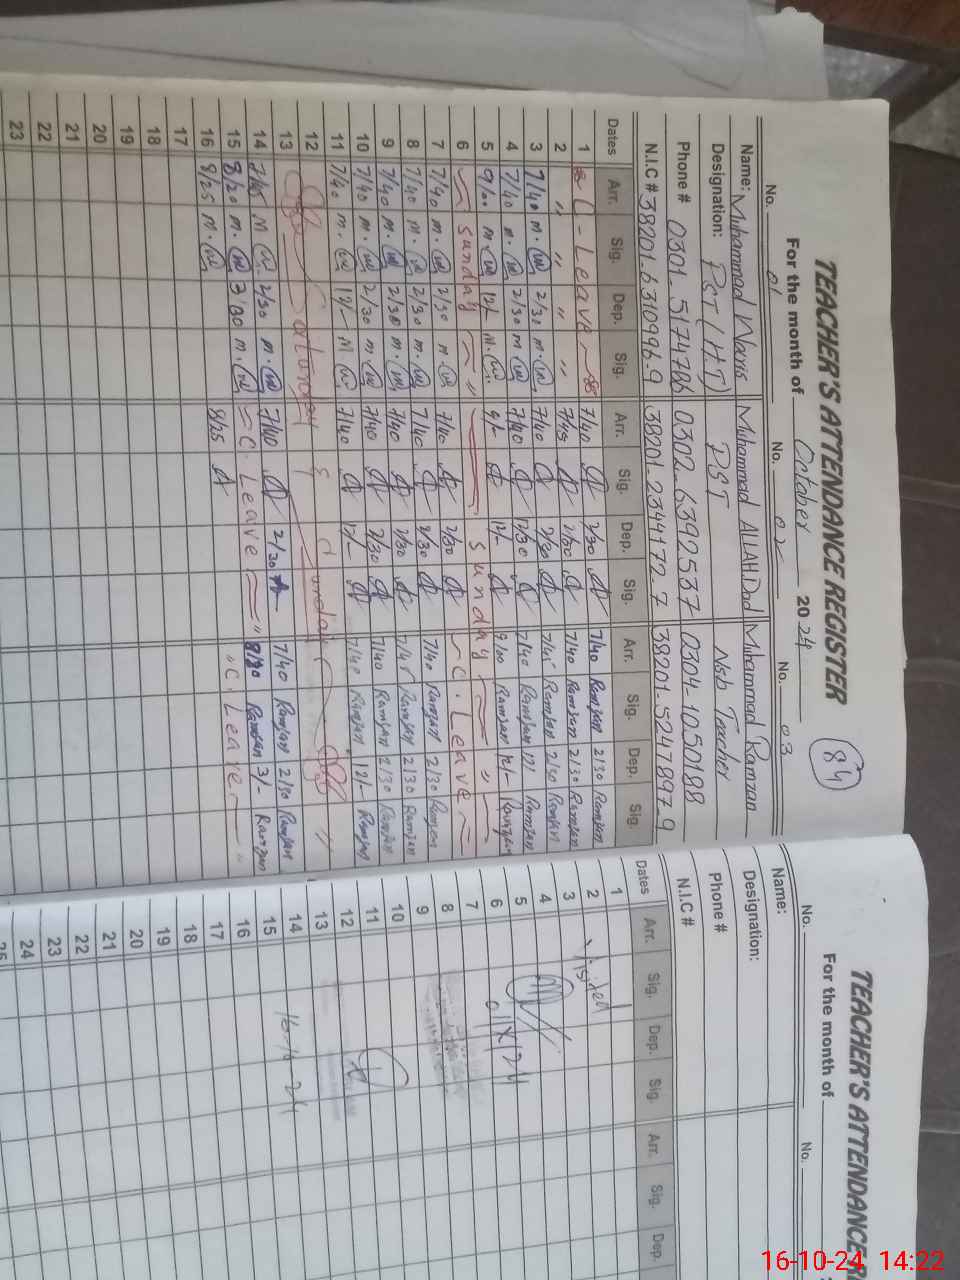 TEACHER'S ATTENDANCE REGISTER
84
For the month of October 2024
No. 01 No. 02 No. 03
Name: Muhammad Waris Muhammad ALLAH Dad Muhammad Ramzan
Designation: PST (H.T) PST Nsb Teacher
Phone # 0301-5174786 0302-6392537 0304-1050188
N.I.C # 38201-6310996-9 38201-2344172-7 38201-5247897-9
Dates Arr. Sig. Dep. Sig. Arr. Sig. Dep. Sig. Arr. Sig. Dep. Sig.
1 C-Leave 7/40 2/30 7/40 Ramzan 2/30 Ramzan
2 " " " " 7/45 2/30 7/40 Ramzan 2/30 Ramzan
3 7/40 m. W 2/30 m. W 7/40 2/30 7/45 Ramzan 2/30 Ramzan
4 7/40 m. W 2/30 m W 7/40 12/30 7/40 Ramzan 12/- Ramzan
5 9/00 m. W 12/- m. W 9/- 12/- 9/00 Ramzan 12/- Ramzan
6 Sunday " Sunday "
7 7/40 m. W 2/30 m. W 7/40 2/30 C. Leave
8 7/40 m. W 2/30 m. W 7/40 2/30 7/40 Ramzan 2/30 Ramzan
9 7/40 m. W 2/30 m. W 7/40 2/30 7/45 Ramzan 2/30 Ramzan
10 7/40 m. W 2/30 m. W 7/40 2/30 7/40 Ramzan 2/30 Ramzan
11 7/40 m. W 12/- M W 7/40 12/- 7/40 Ramzan 12/- Ramzan
12 Saturday & Sunday "
13
14 7/45 M W 2/30 m. W 7/40 2/30 7/40 Ramzan 2/30 Ramzan
15 8/20 m. W 3/30 m. W C. Leave " 8/20 Ramzan 3/- Ramzan
16 8/25 m. W 8/25 " C. Leave "
17
18
19
20
21
22
23
TEACHER'S ATTENDANCE R
For the month of
No. No.
Name:
Designation:
Phone #
N.I.C #
Dates Arr. Sig. Dep. Sig. Arr. Sig. Dep.
1
2 Visited
3
4
5
6 01/X/24
7
8
9
10
11
12
13
14 16-10-24
15
16
17
18
19
20
21
22
23
24
25
16-10-24 14:22